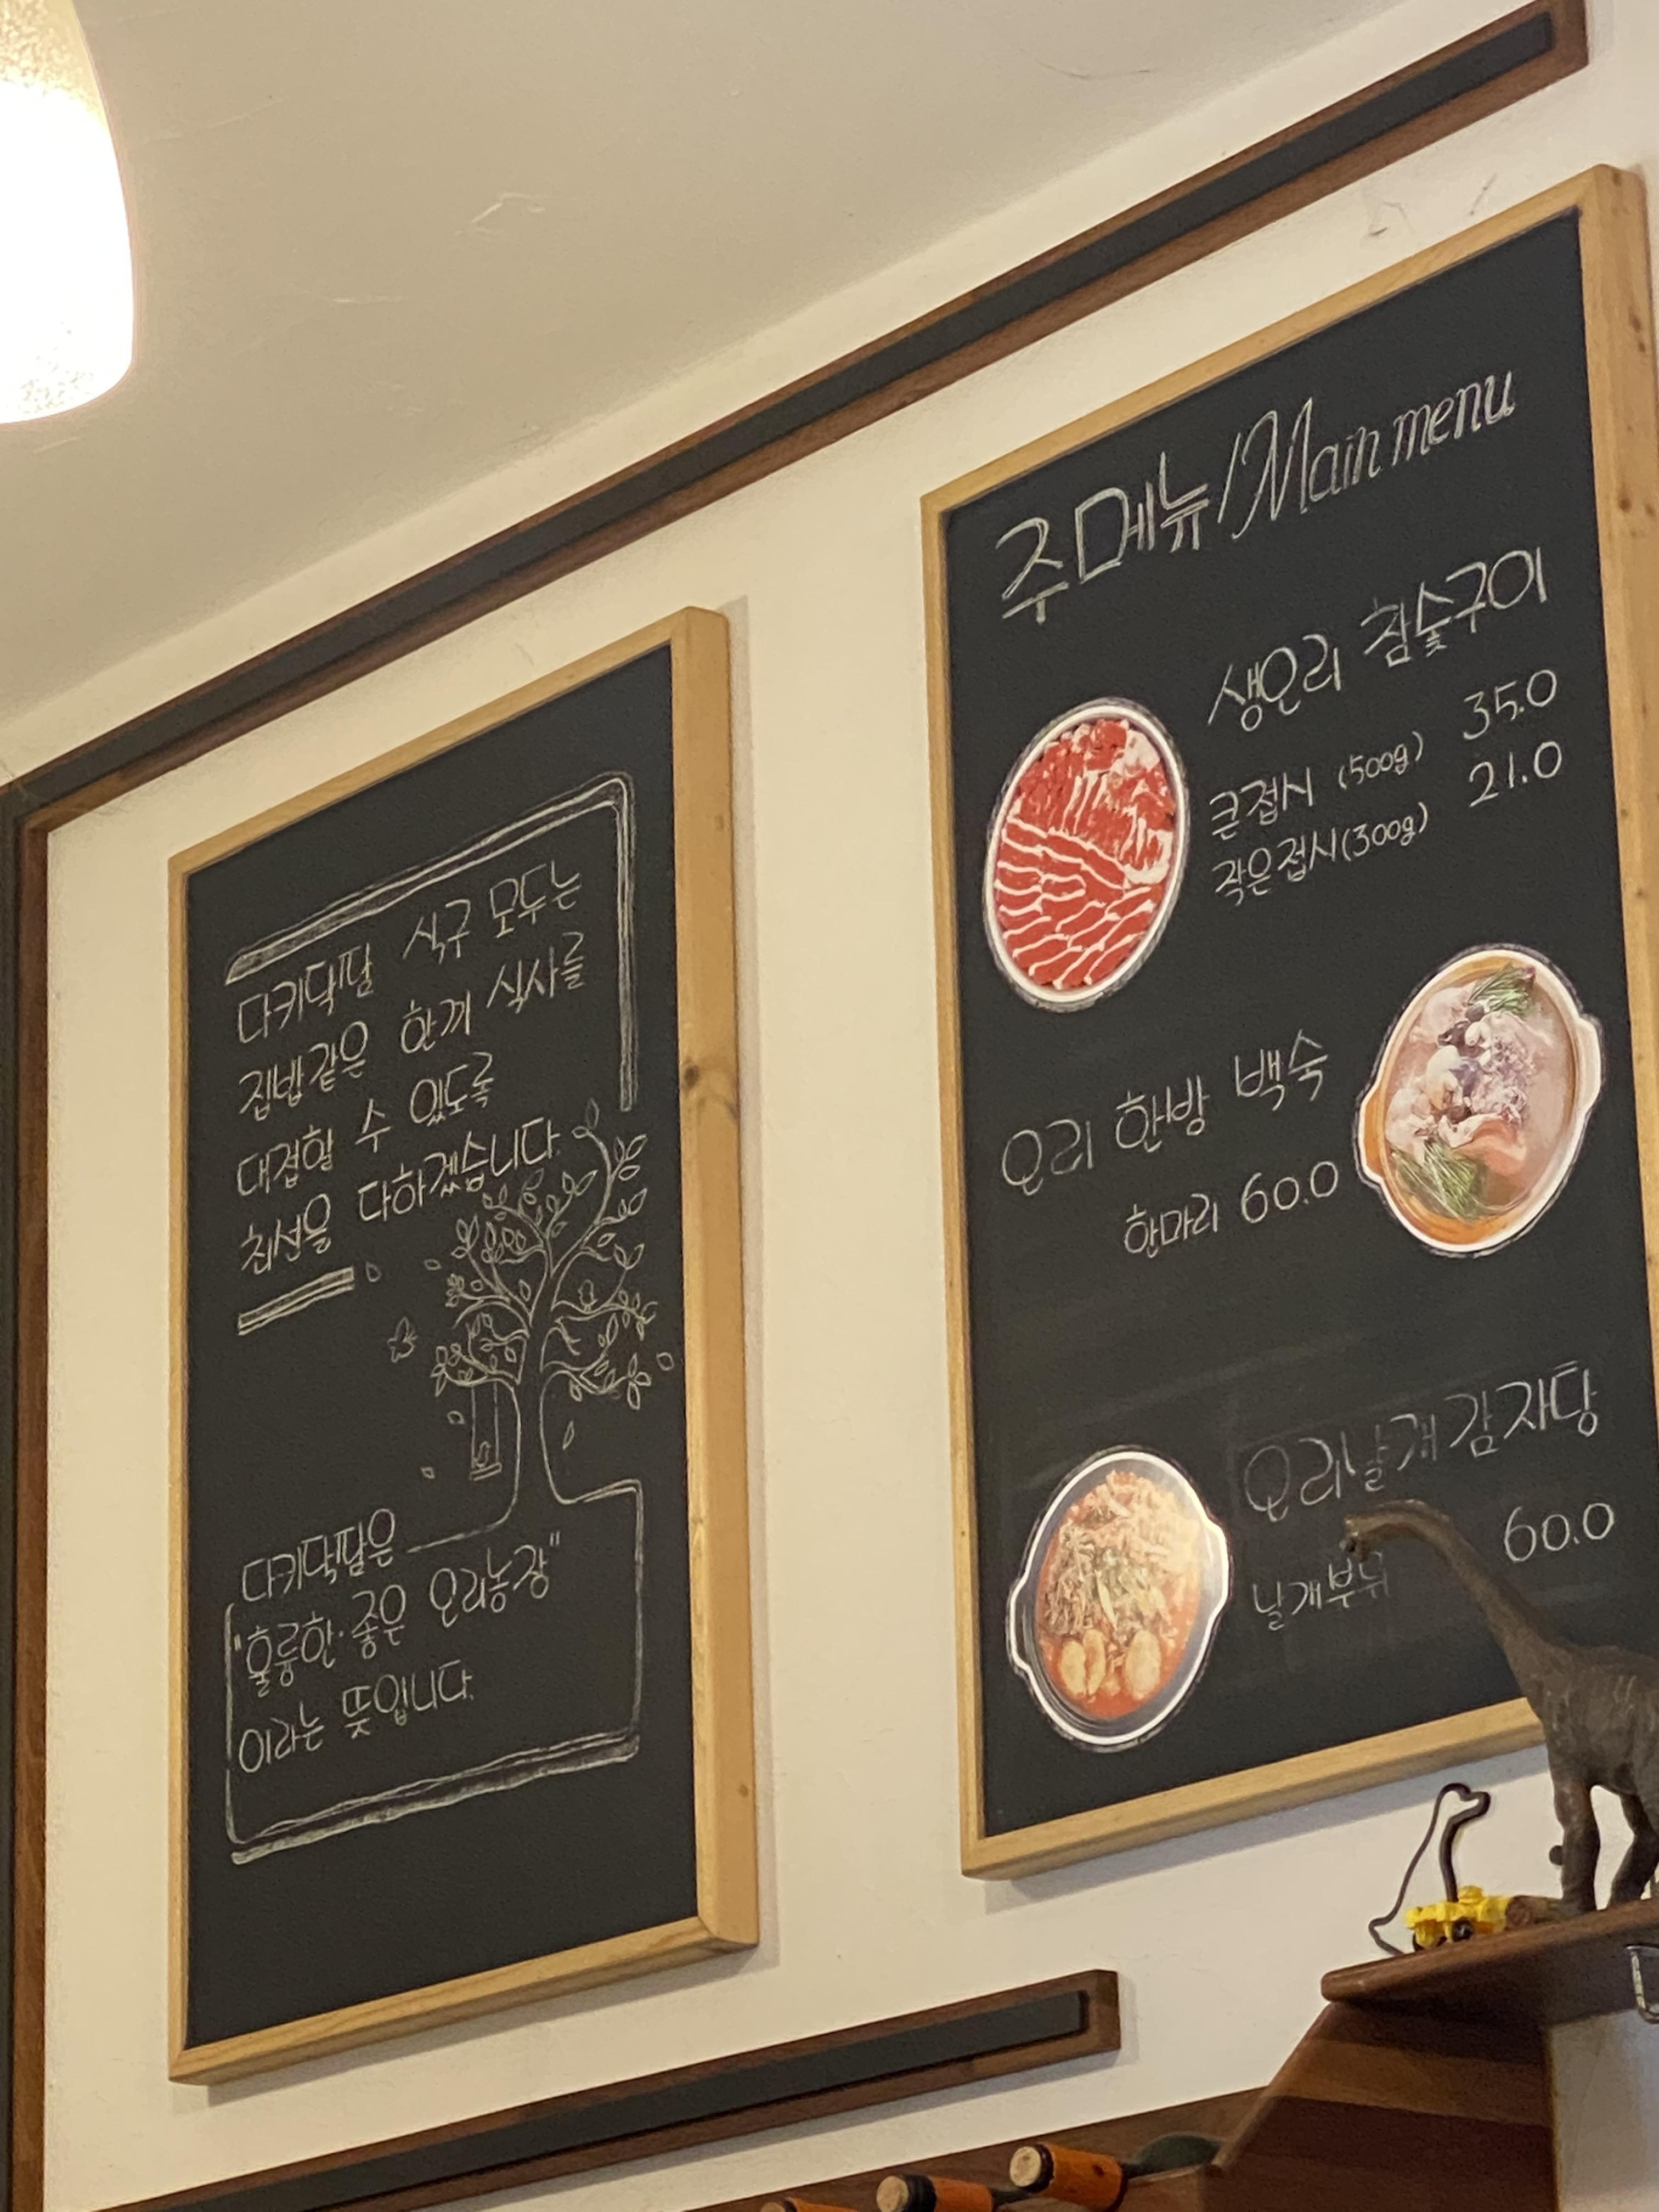 다키닥팜 식구 모두는
집밥같은 한끼 식사를
대접할 수 있도록
최선을 다하겠습니다.
다키닥팜은
"훌륭한·좋은 오리농장"
이라는 뜻입니다.
주메뉴/Main menu
생오리 참숯구이
큰접시 (500g) 35.0
작은접시(300g) 21.0
오리 한방 백숙
한마리 60.0
오리날개감자탕
날개부위 60.0